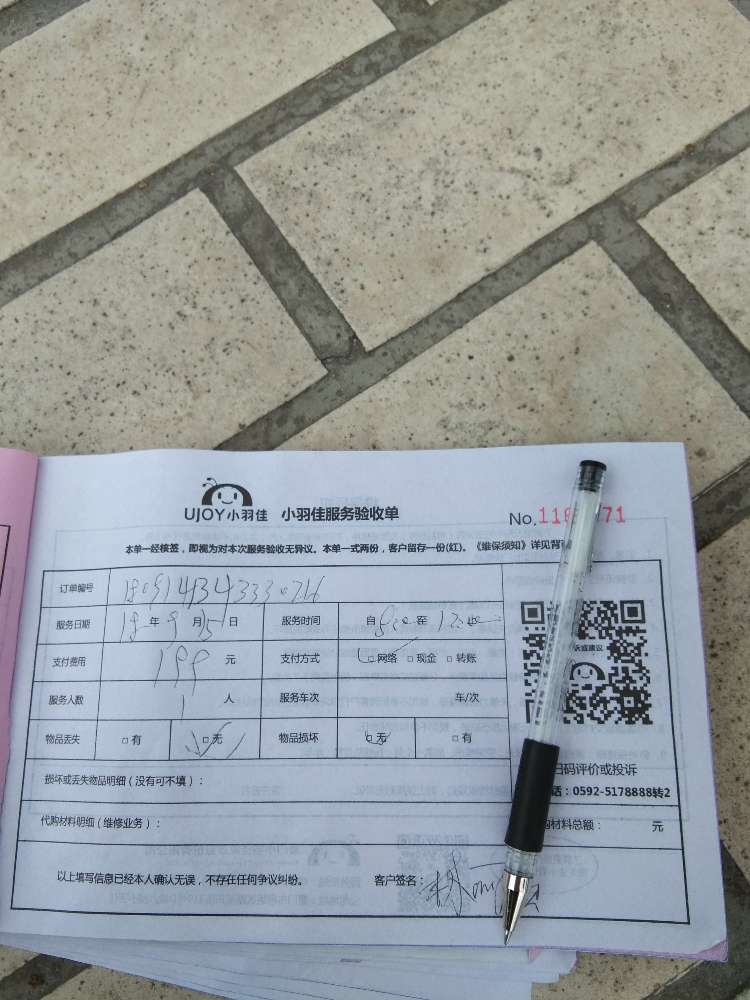 UJOY小羽佳 小羽佳服务验收单 No.116 71
本单一经核签，即视为对本次服务验收无异议。本单一式两份，客户留存一份(红)。《维保须知》详见背
订单编号
服务日期 18年9月15日 服务时间 自 至
支付费用 199 元 支付方式 □网络 □现金 □转账
服务人数 1 人 服务车次 车/次
物品丢失 □有 □无 物品损坏 □无 □有
诉或建议
扫码评价或投诉
损坏或丢失物品明细（没有可不填）：
话：0592-5178888转2
代购材料明细（维修业务）： 购材料总额： 元
以上填写信息已经本人确认无误，不存在任何争议纠纷。 客户签名：